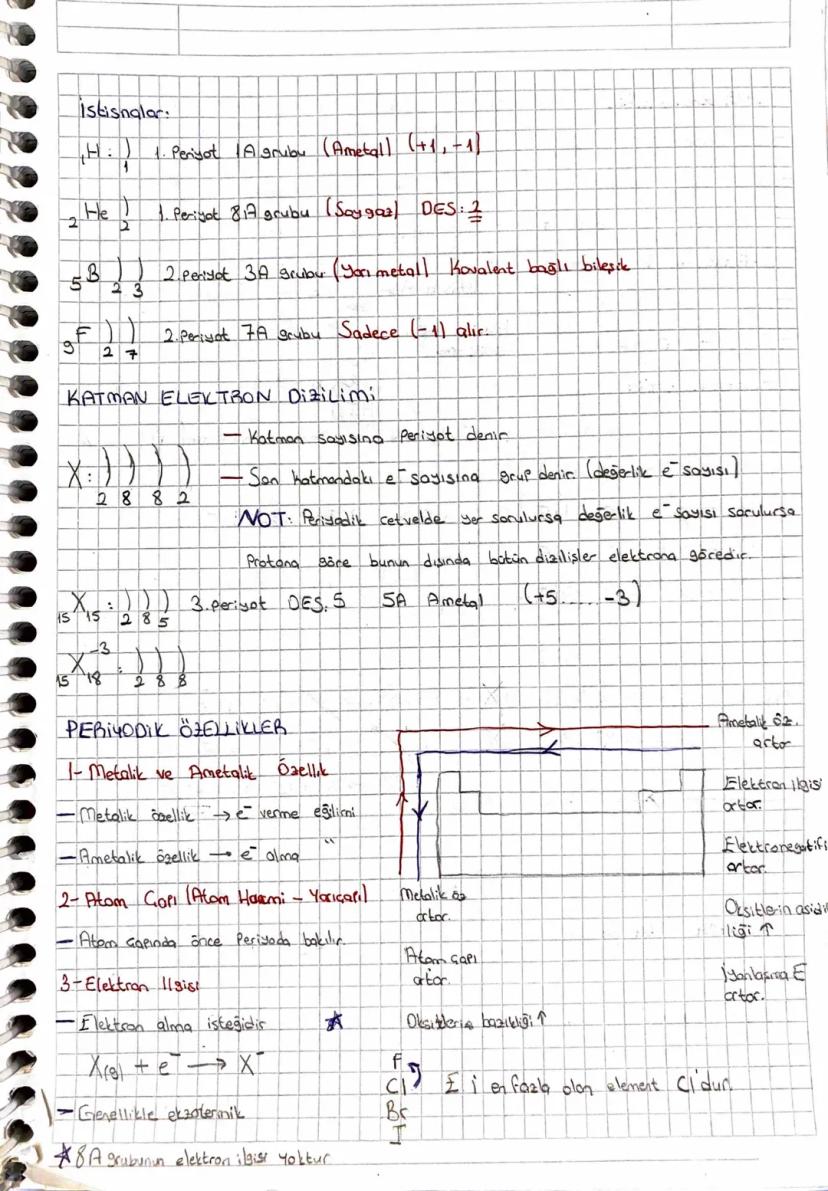 İstisnalar:
₁H: ) 1. Periyot 1A grubu (Ametal) (+1, -1)
1
₂He ) 1. Periyot 8A grubu (Soygaz) DES: 2
2
₅B ) ) 2.periyot 3A grubu (Yarı metal) Kovalent bağlı bileşik
2 3
₉F ) ) 2.periyot 7A grubu Sadece (-1) alır.
2 7
KATMAN ELEKTRON DİZİLİMİ
— Katman sayısına Periyot denir
X: ) ) ) ) — Son katmandaki e⁻ sayısına grup denir. (değerlik e⁻ sayısı)
2 8 8 2
NOT: Periyodik cetvelde yer sorulursa değerlik e⁻ sayısı sorulursa
Protona göre bunun dışında bütün dizilişler elektrona göredir.
₁₅X₁₅: ) ) ) 3.periyot DES: 5 5A Ametal (+5......-3)
2 8 5
₁₅X₁₈⁻³: ) ) )
2 8 8
PERİYODİK ÖZELLİKLER
1- Metalik ve Ametalik Özellik
— Metalik özellik → e⁻ verme eğilimi
— Ametalik özellik → e⁻ alma "
2- Atom Çapı (Atom Hacmi - Yarıçapı)
— Atom çapında önce Periyoda bakılır.
3- Elektron ilgisi
— Elektron alma isteğidir
X(g) + e⁻ → X⁻
— Genellikle ekzotermik
★ 8A grubunun elektron ilgisi yoktur
Ametalik öz.
artar
Elektron ilgisi
artar.
Elektronegatifli
artar.
Oksitlerin asidi
liği ↑
İyonlaşma E
artar.
Metalik öz
artar.
Atom çapı
artar.
★ Oksitlerin bazikliği ↑
F
Cl E i en fazla olan element Cl'dur.
Br
I